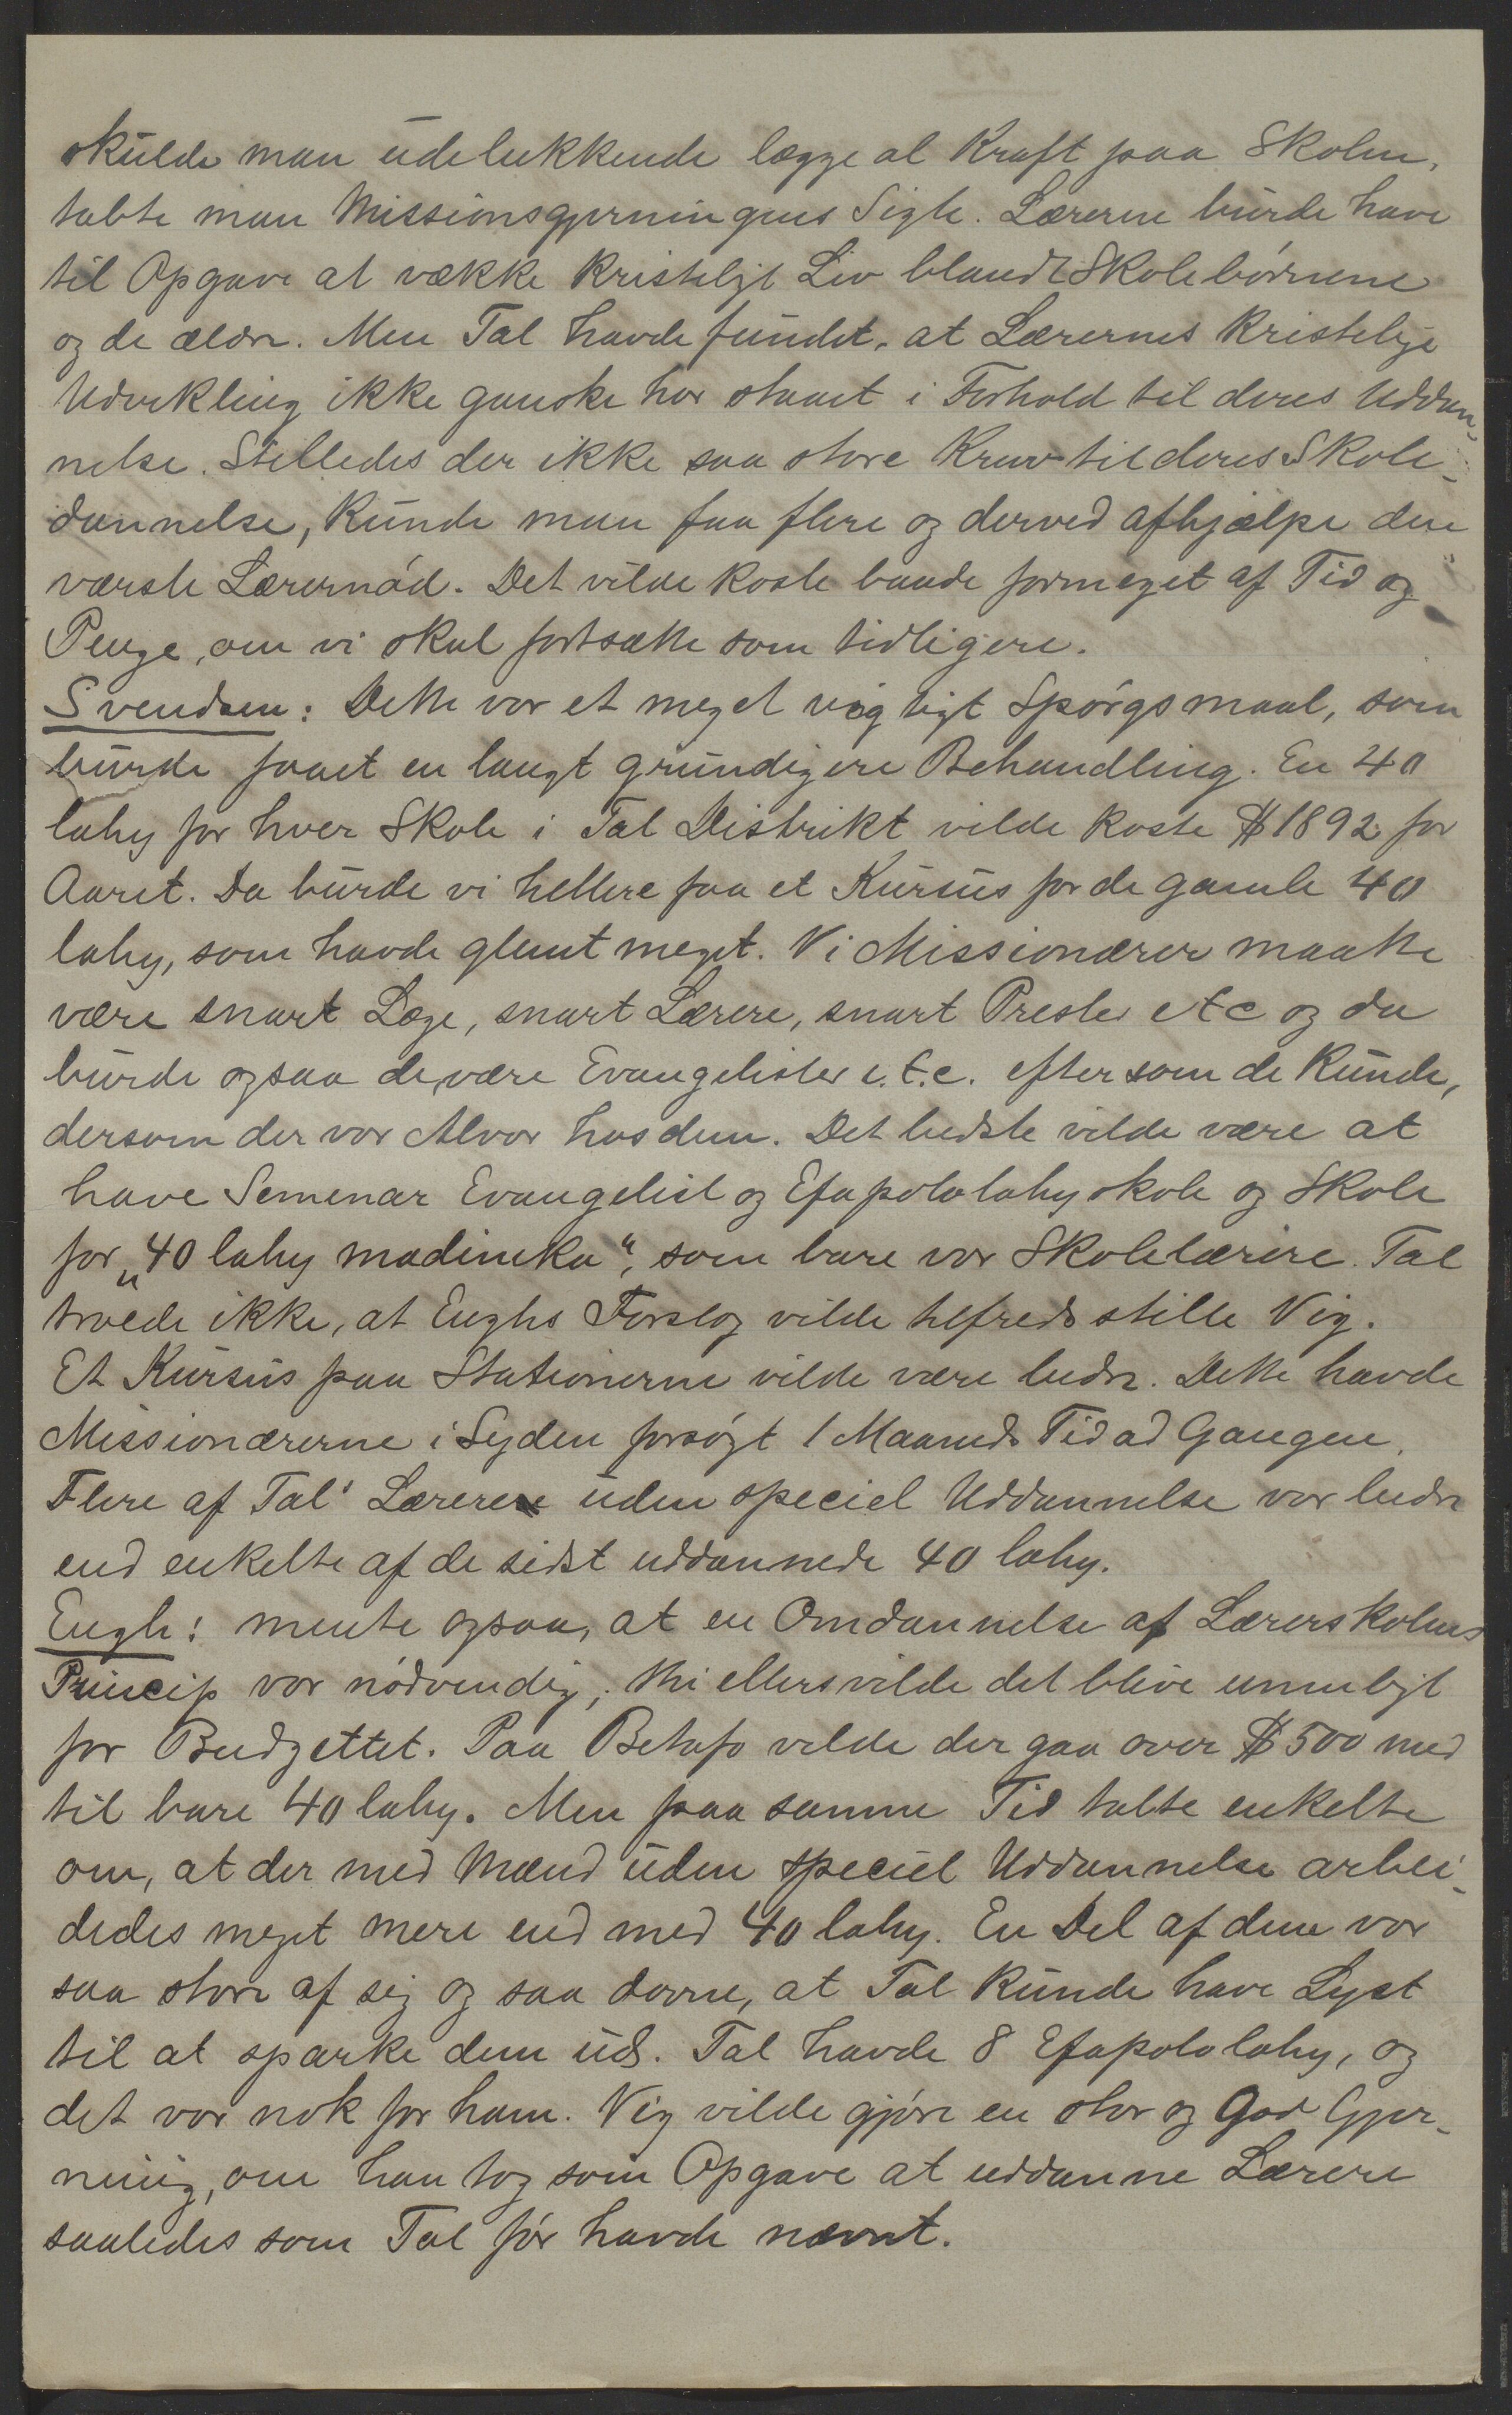 skulde man udelukkende lægge al Kraft paa Skolen,
tabte man Missionsgjerningens Sigte. Lærerne burde have
til Opgave at vække kristeligt Liv blandt Skolebørnene
og de ældre. Men Tal havde fundet, at Lærernes kristelige
Udvikling ikke ganske har staaet i Forhold til deres Uddan-
nelse. Stilledes der ikke saa store Krav til deres Skole-
dannelse, kunde man faa flere og derved afhjælpe den
værste Lærernød. Det vilde koste baade formeget af Tid og
Penge, om vi skal fortsætte som tidligere.
Svendsen: Dette var et meget vigtigt Spørgsmaal, som
burde faaet en langt grundigere Behandling. En 40
lahy for hver Skole i Tal Distrikt vilde koste $ 1892 for
Aaret. Da burde vi hellere faa et Kursus for de gamle 40
lahy, som havde glemt meget. Vi Missionærer maatte
være snart Læge, snart Lærere, snart Prester etc og da
burde ogsaa de være Evangelister e.t.c. eftersom de kunde,
dersom der var Alvor hos dem. Det bedste vilde være at
have Semenar Evangelist og Efapololahyskole og Skole
for „40 lahy madinika“, som bare var Skolelærere. Tal
troede ikke, at Enghs Forslag vilde tilfredsstille Vig.
Et Kursus paa Stationerne vilde være bedre. Dette havde
Missionærerne i Syden forsøgt 1 Maaneds Tid ad Gangen.
Flere af Tal' Lærere uden speciel Uddannelse var bedre
end enkelte af de sidst uddannede 40 lahy.
Engh: mente ogsaa, at en Omdannelse af Lærerskolens
Princip var nødvendig, thi ellers vilde det blive umuligt
for Budgettet. Paa Betafo vilde der gaa over $ 500 med
til bare 40 lahy. Men paa samme Tid talte enkelte
om, at der med Mænd uden speciel Uddannelse arbei-
dedes meget mere end med 40 lahy. En Del af dem var
saa store af sig og saa dovne, at Tal kunde have Lyst
til at sparke dem ud. Tal havde 8 Efapololahy, og
det var nok for ham. Vig vilde gjøre en stor og God Gjer-
ning, om han tog som Opgave at uddanne Lærere
saaledes som Tal før havde nævnt.